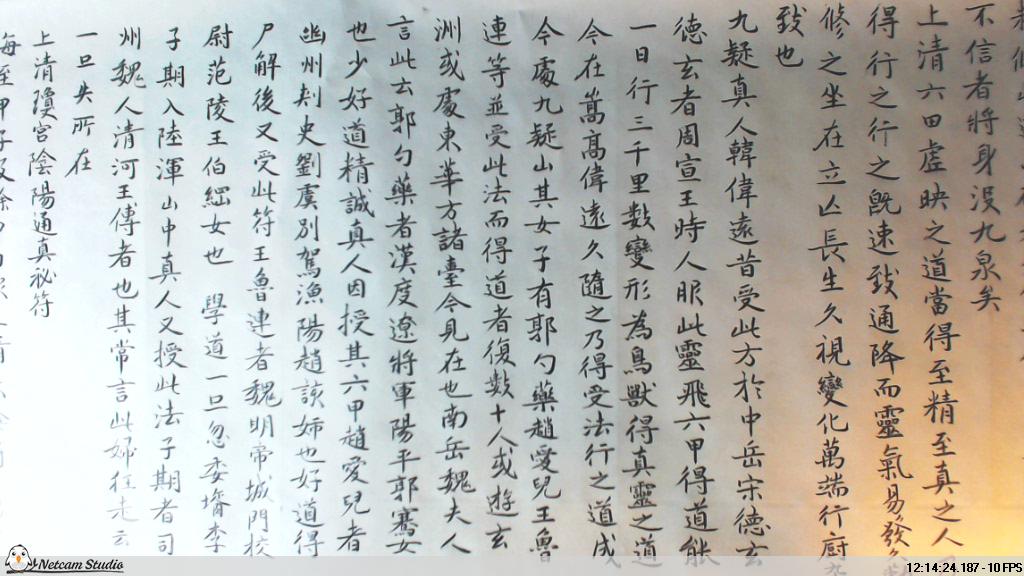 不信者將身没九泉矣
上清六甲虚映之道當得至精至真之人
得行之行之既速致通降而靈氣易發
修之坐在立亡長生久視變化萬端行廚
致也
九疑真人韓偉遠昔受此方於中岳宋德玄
德玄者周宣王時人服此靈飛六甲得道能
一日行三千里數變形為鳥獸得真靈之道
今在嵩高偉遠久隨之乃得受法行之道成
今處九疑山其女子有郭勺藥趙愛兒王魯
連等並受此法而得道者復數十人或遊玄
洲或處東華方諸臺今見在也南岳魏夫人
言此云郭勺藥者漢度遼將軍陽平郭騫女
也少好道精誠真人因授其六甲趙愛兒者
幽州刾史劉虞別駕漁陽趙該姊也好道得
尸解後又受此符王魯連者魏明帝城門校
尉范陵王伯綱女也 學道一旦忽委壻李
子期入陸渾山中真人又授此法子期者司
州魏人清河王傳者也其常言此婦狂走云
一旦失所在
上清瓊宮陰陽通真祕符
Netcam Studio
12:14:24.187 - 10 FPS